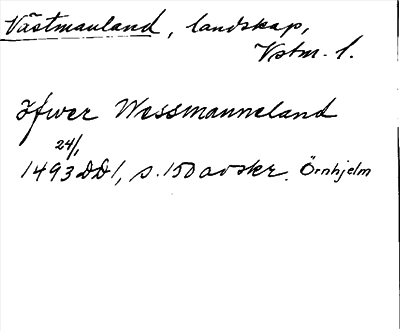 Västmanland, landskap,
Vstm. l.
Öfwer Wessmanneland
24/1
1493 DD1, s. 150 avskr. Örnhjelm